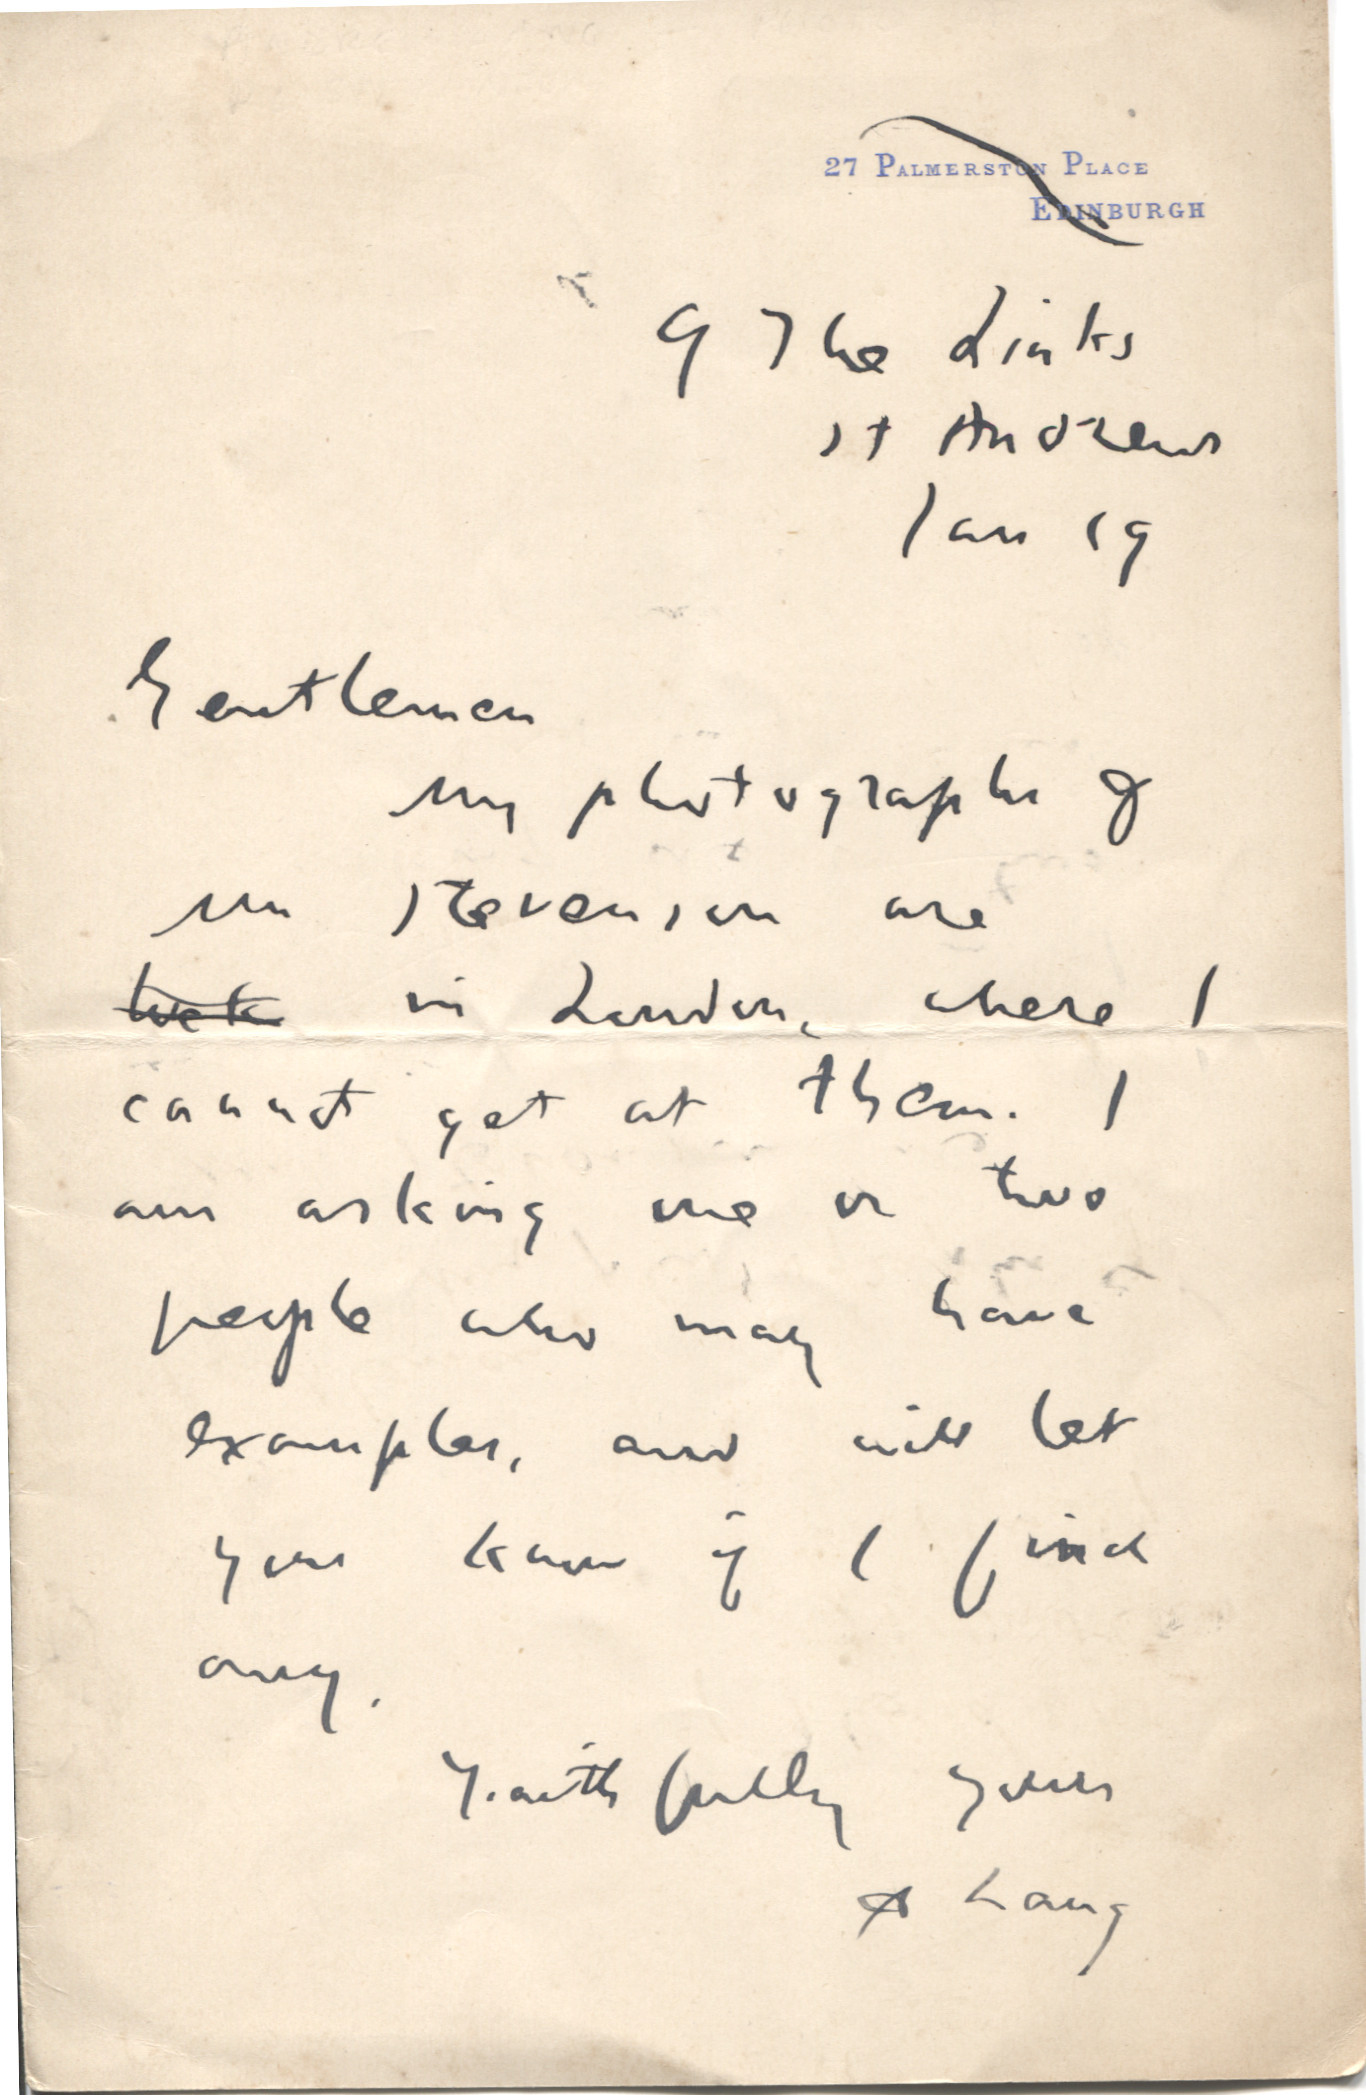 27 Palmerston Place
Edinburgh
9 The Links
St Andrews
Jan 19
Gentlemen
My photographs of
Mr Stevenson are
in London, where I
cannot get at them. I
am asking one or two
people who may have
examples, and will let
you know if I find
any.
Faithfully yours
A Lang